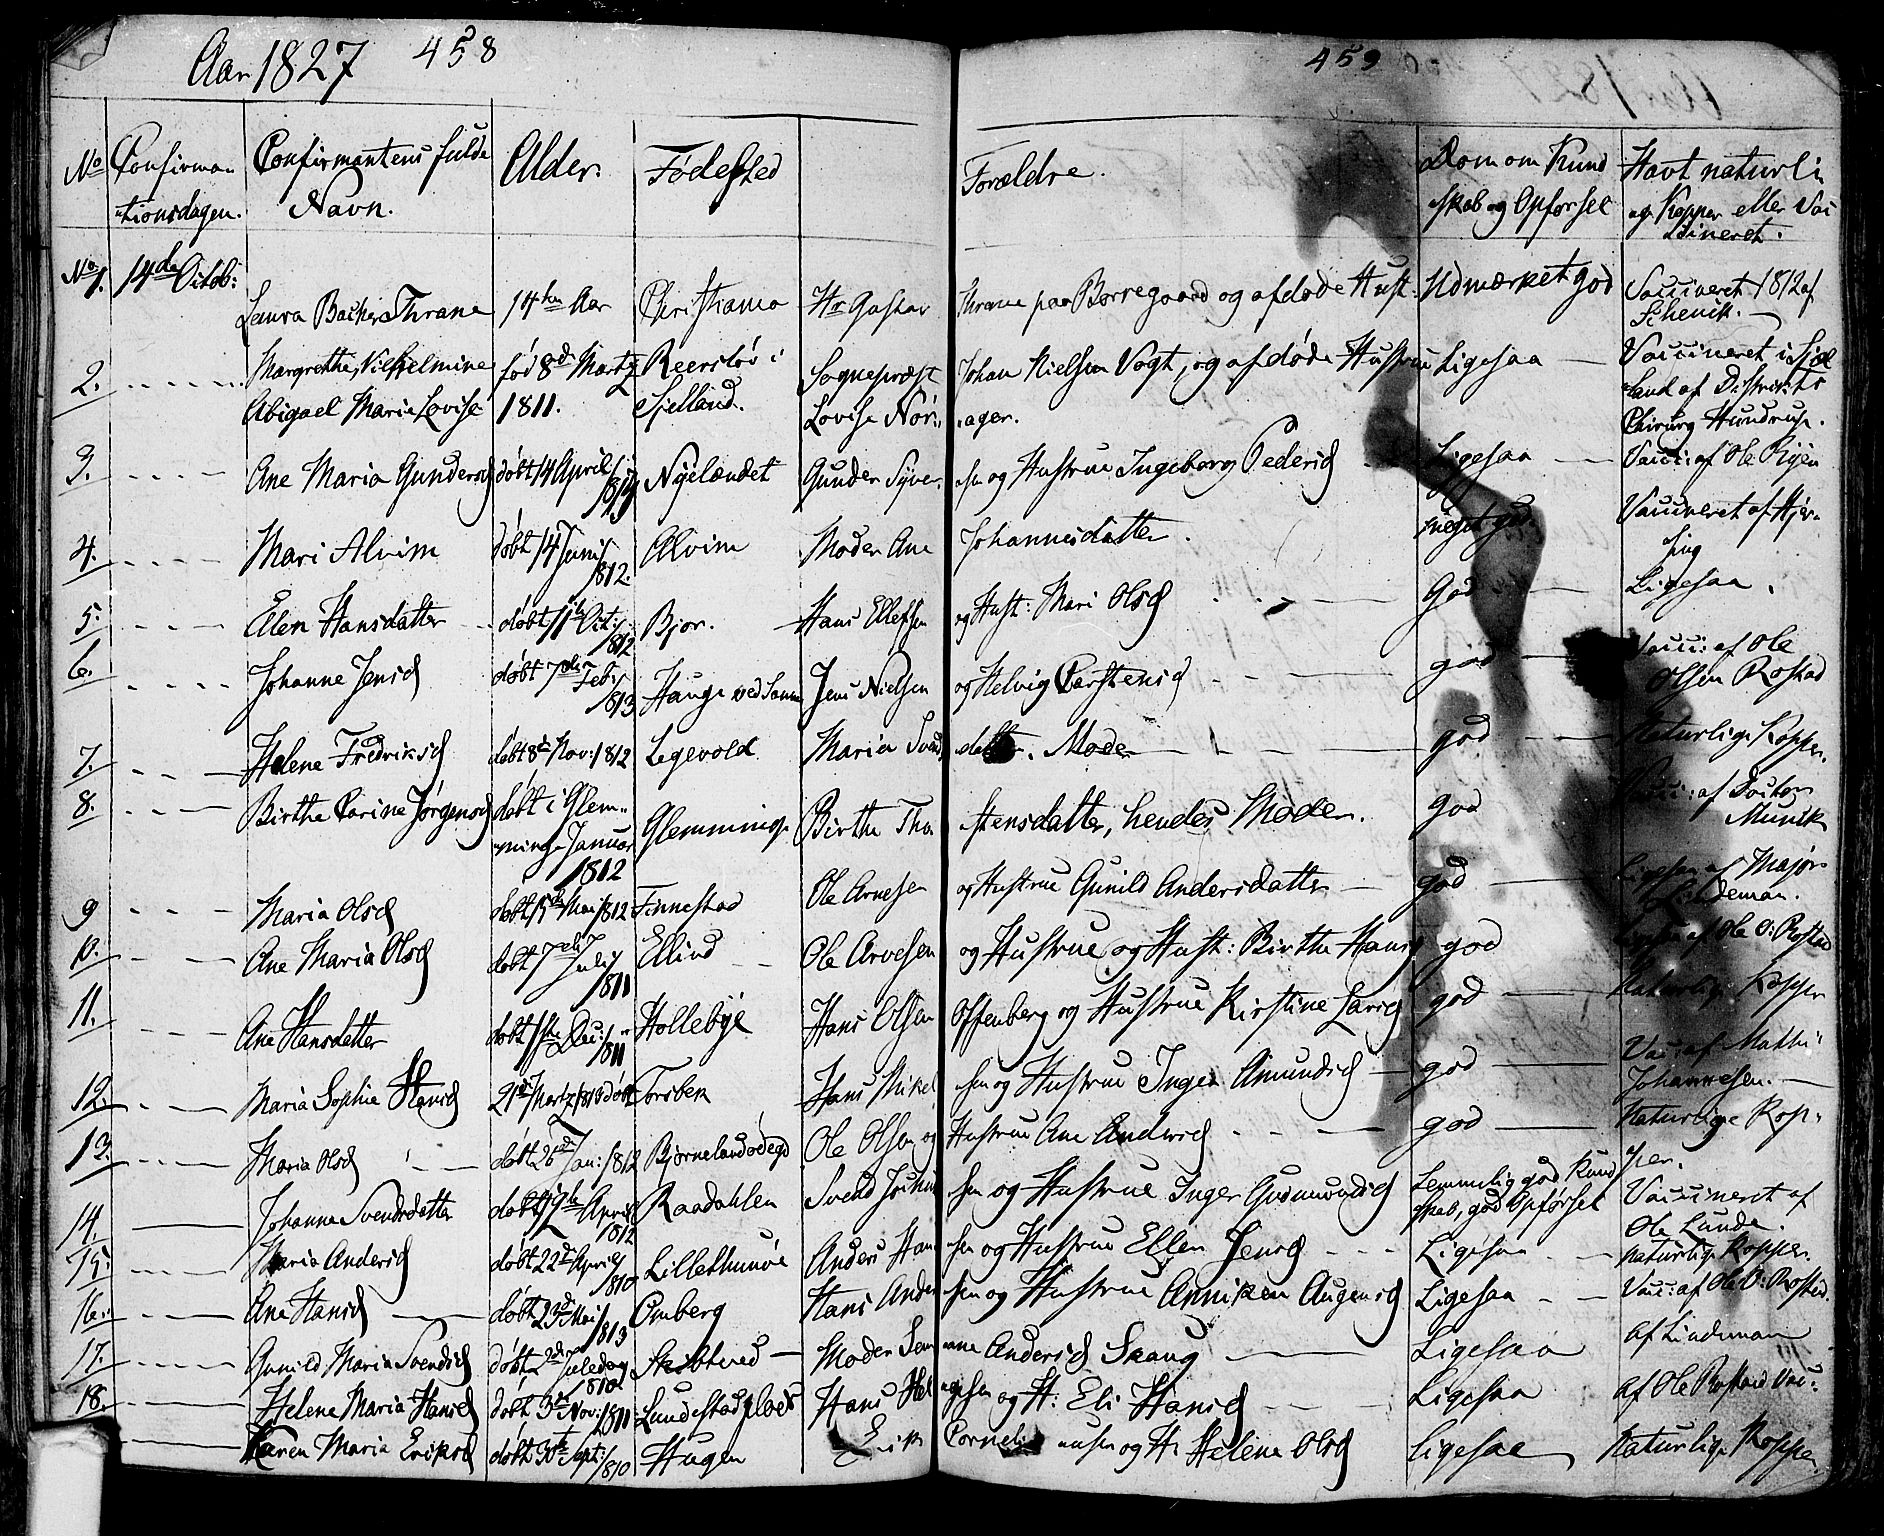 Aar 1827 458
459
No Confirma- Confirmantens fulde Alder. Fødested Forældre. Dom om Kund Havt naturli
tionsdagen. Navn. skab og Opførsel ge Kopper eller Vac
cineret.
No 1. 14de Octob: Laura Backer Thrane 14ten Aar Christiania Hr Gustav Thrane paa Borregaard og afdøde Hust. Udmærket god Vaccineret 1812 af
2. Margrethe Vilhelmine fød 8de Martz Reersløv i Sognepræst Johan Nielsen Vogt, og afdøde Hustrue Ligesaa Vaccineret i Sjel
Abigael Marie Lovise 1811. Sjelland. Lovise Nør- ager. land af Districts
Chirurg Hundrup.
3. Ane Maria Gundersd døbt 14 April Nyelændet Gunder Syver- sen og Hustrue Ingeborg Pedersd Ligesaa Vacc: af Ole
4. Mari Alvim døbt 14 Juni 1812. Alvim Moder Ane Johannesdatter. meget god. Vaccineret af
5. Elen Hansdatter døbt 11te Oct: 1812 Bjør. Hans Ellefsen og Hust: Mari Olsd God Ligesaa.
6. Johanne Jensd døbt 7de Feb: 1813 Hauge ved Sanne Jens Nielsen og Helvig Carstensd god Vacc: af Ole
Olsen Rostad
7. Helene Fredriksd døbt 8de Nov: 1812 Legevold Maria Svends datter. Moder god Naturlige Kopper.
8. Birthe Carine Jørgensd døbt i Glem- Glemminge Birthe Tho- stensdatter, hendes Moder. god Vacc: af Doctor
minge Januar Munck
1812
9 Maria Olsd døbt 15de Mai 1812 Finnestad Ole Arnesen og Hustrue Gunild Andersdatter god Ligesaa af Major
Lindeman.
10. Ane Maria Olsd døbt 7de Juli 1811 Ellind Ole Arvesen og Hustrue og Hust: Birthe Hansd god af Ole O: Rostad
11. Ane Hansdatter døbt 1ste Dec: 1811 Hollebye Hans Olsen Offenberg og Hustrue Kirstine Larsd god Naturlige Kopper
12. Maria Sophie Hansd 21de Martz 1813 døbt Torsbek Hans Mikel- sen og Hustrue Inger Amundsd god Vacc: af Mathi
Johannesen.
13. Maria Olsd døbt 26de Jan: 1812 Bjørnelandødegd Ole Olsen og Hustrue Ane Andersd god Naturlige Kop-
per.
14. Johanne Svendsdatter døbt 19de April 1812 Raadahlen Svend Jochum sen og Hustrue Inger Gudmundsd Temmelig god Kund Vaccineret af
skab, god Opførsel Ole Lunde.
15. Maria Andersd døbt 22de April 1810 Lillethunøe Anders Han sen og Hustrue Ellen Jensd Ligesaa naturlige Kopper
16. Ane Hansd døbt 23de Mai 1813 Omberg Hans Ander sen og Hustrue Anniken Augensd Ligesaa Vacc: af Ole O: Rostad.
17. Gunild Maria Svendsd døbt 2de Juledag 1810 Skibtved Moder Sem ane Andersd Skaug Ligesaa af Lindeman
18. Helene Maria Hansd døbt 3de Nov: 1811 Lundestadplads Hans Hel- gesen og H: Eli Hansd Ligesaa af Ole Rostad Vacc:
Karen Maria Eriksd døbt 30te Sept: 1810 Haugen Erik Corneli usen og H: Helene Olsd Ligesaa Naturlige Kopper.